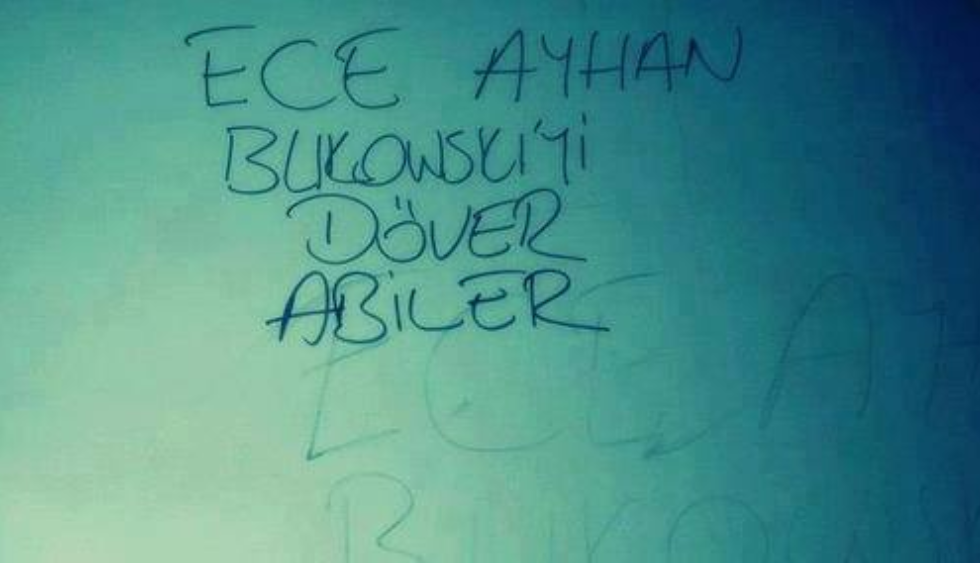 ECE AYHAN
BUKOWSKI'Yİ
DÖVER
ABİLER
ECE AY
BUKOWS